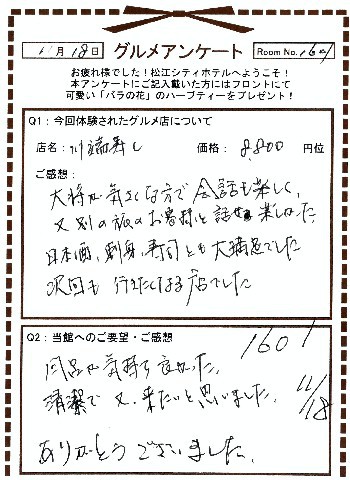 11月18日 グルメアンケート Room No. 1601
お疲れ様でした！松江シティホテルへようこそ！
本アンケートにご記入戴いた方にはフロントにて
可愛い「バラの花」のハーブティーをプレゼント！
Q1：今回体験されたグルメ店について
店名：川端寿し 価格：8800 円位
ご感想：
大将が気さくな方で会話も楽しく、
又別の旅のお客様と話せ楽しかった
日本酒、刺身、寿司とも大満足でした
次回も行きたくなる店でした
Q2：当館へのご要望・ご感想
1601
11/18
気持ち良かった。
清潔で又、来たいと思いました。
ありがとうございました。